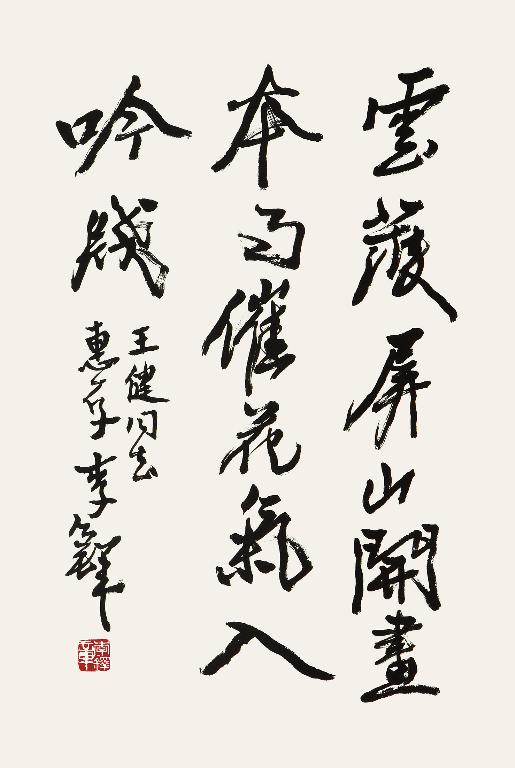 雲護屏山開畫
本雨催花氣入
吟牋
王健同志
惠存李鐸